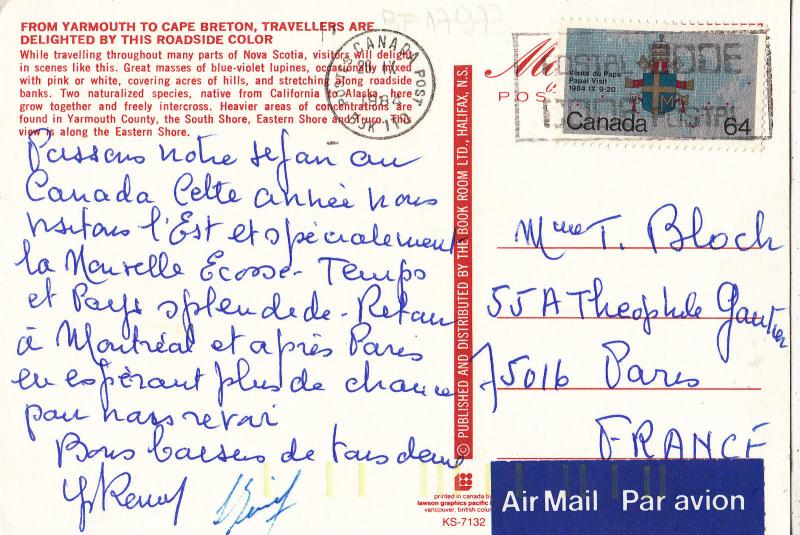 FROM YARMOUTH TO CAPE BRETON, TRAVELLERS ARE
DELIGHTED BY THIS ROADSIDE COLOR
While travelling throughout many parts of Nova Scotia, visitors will delight
in scenes like this. Great masses of blue-violet lupines, occasionally mixed
with pink or white, covering acres of hills, and stretching along roadside
banks. Two naturalized species, native from California to Alaska, here
grow together and freely intercross. Heavier areas of concentrations are
found in Yarmouth County, the South Shore, Eastern Shore and Truro. This
view is along the Eastern Shore.
Passons notre séjour au
Canada Cette année nous
visitons l'Est et spécialement
la Nouvelle Ecosse - Temps
et Pays splendede - Retour
à Montréal et après Paris
en espérant plus de chance
pour nous revoir
Bons baisers de tous deux
© PUBLISHED AND DISTRIBUTED BY THE BOOK ROOM LTD., HALIFAX, N.S.
CANADA POST
1984
POS
Visite du Pape
Papal Visit
1984 IX 9-20
Canada 64
CODE
POSTAL
Mme T. Bloch
55 A Theophile Gautier
75016 Paris
FRANCE
printed in canada by
lawson graphics pacific
vancouver, british colu
KS-7132
Air Mail Par avion